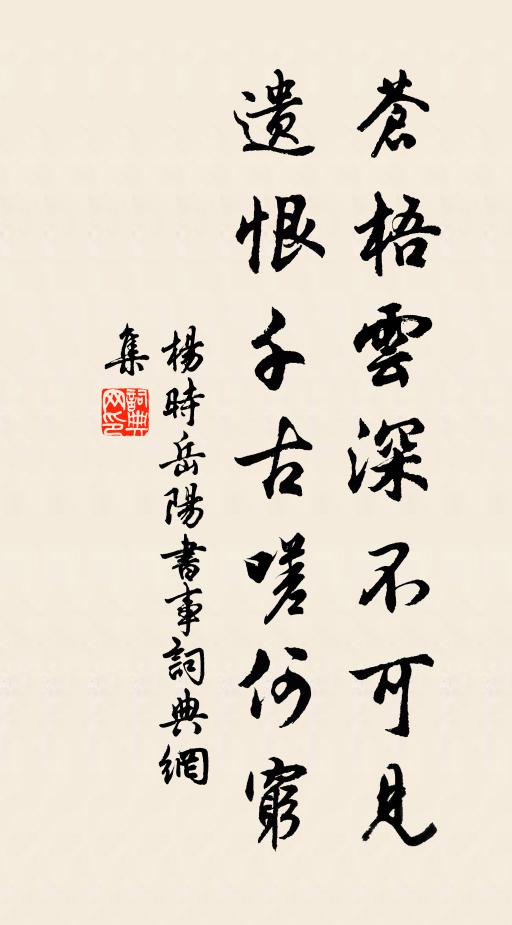 蒼梧雲深不可見
遺恨千古嗟何窮
楊時岳陽書事詞典網
集
詞典
网印